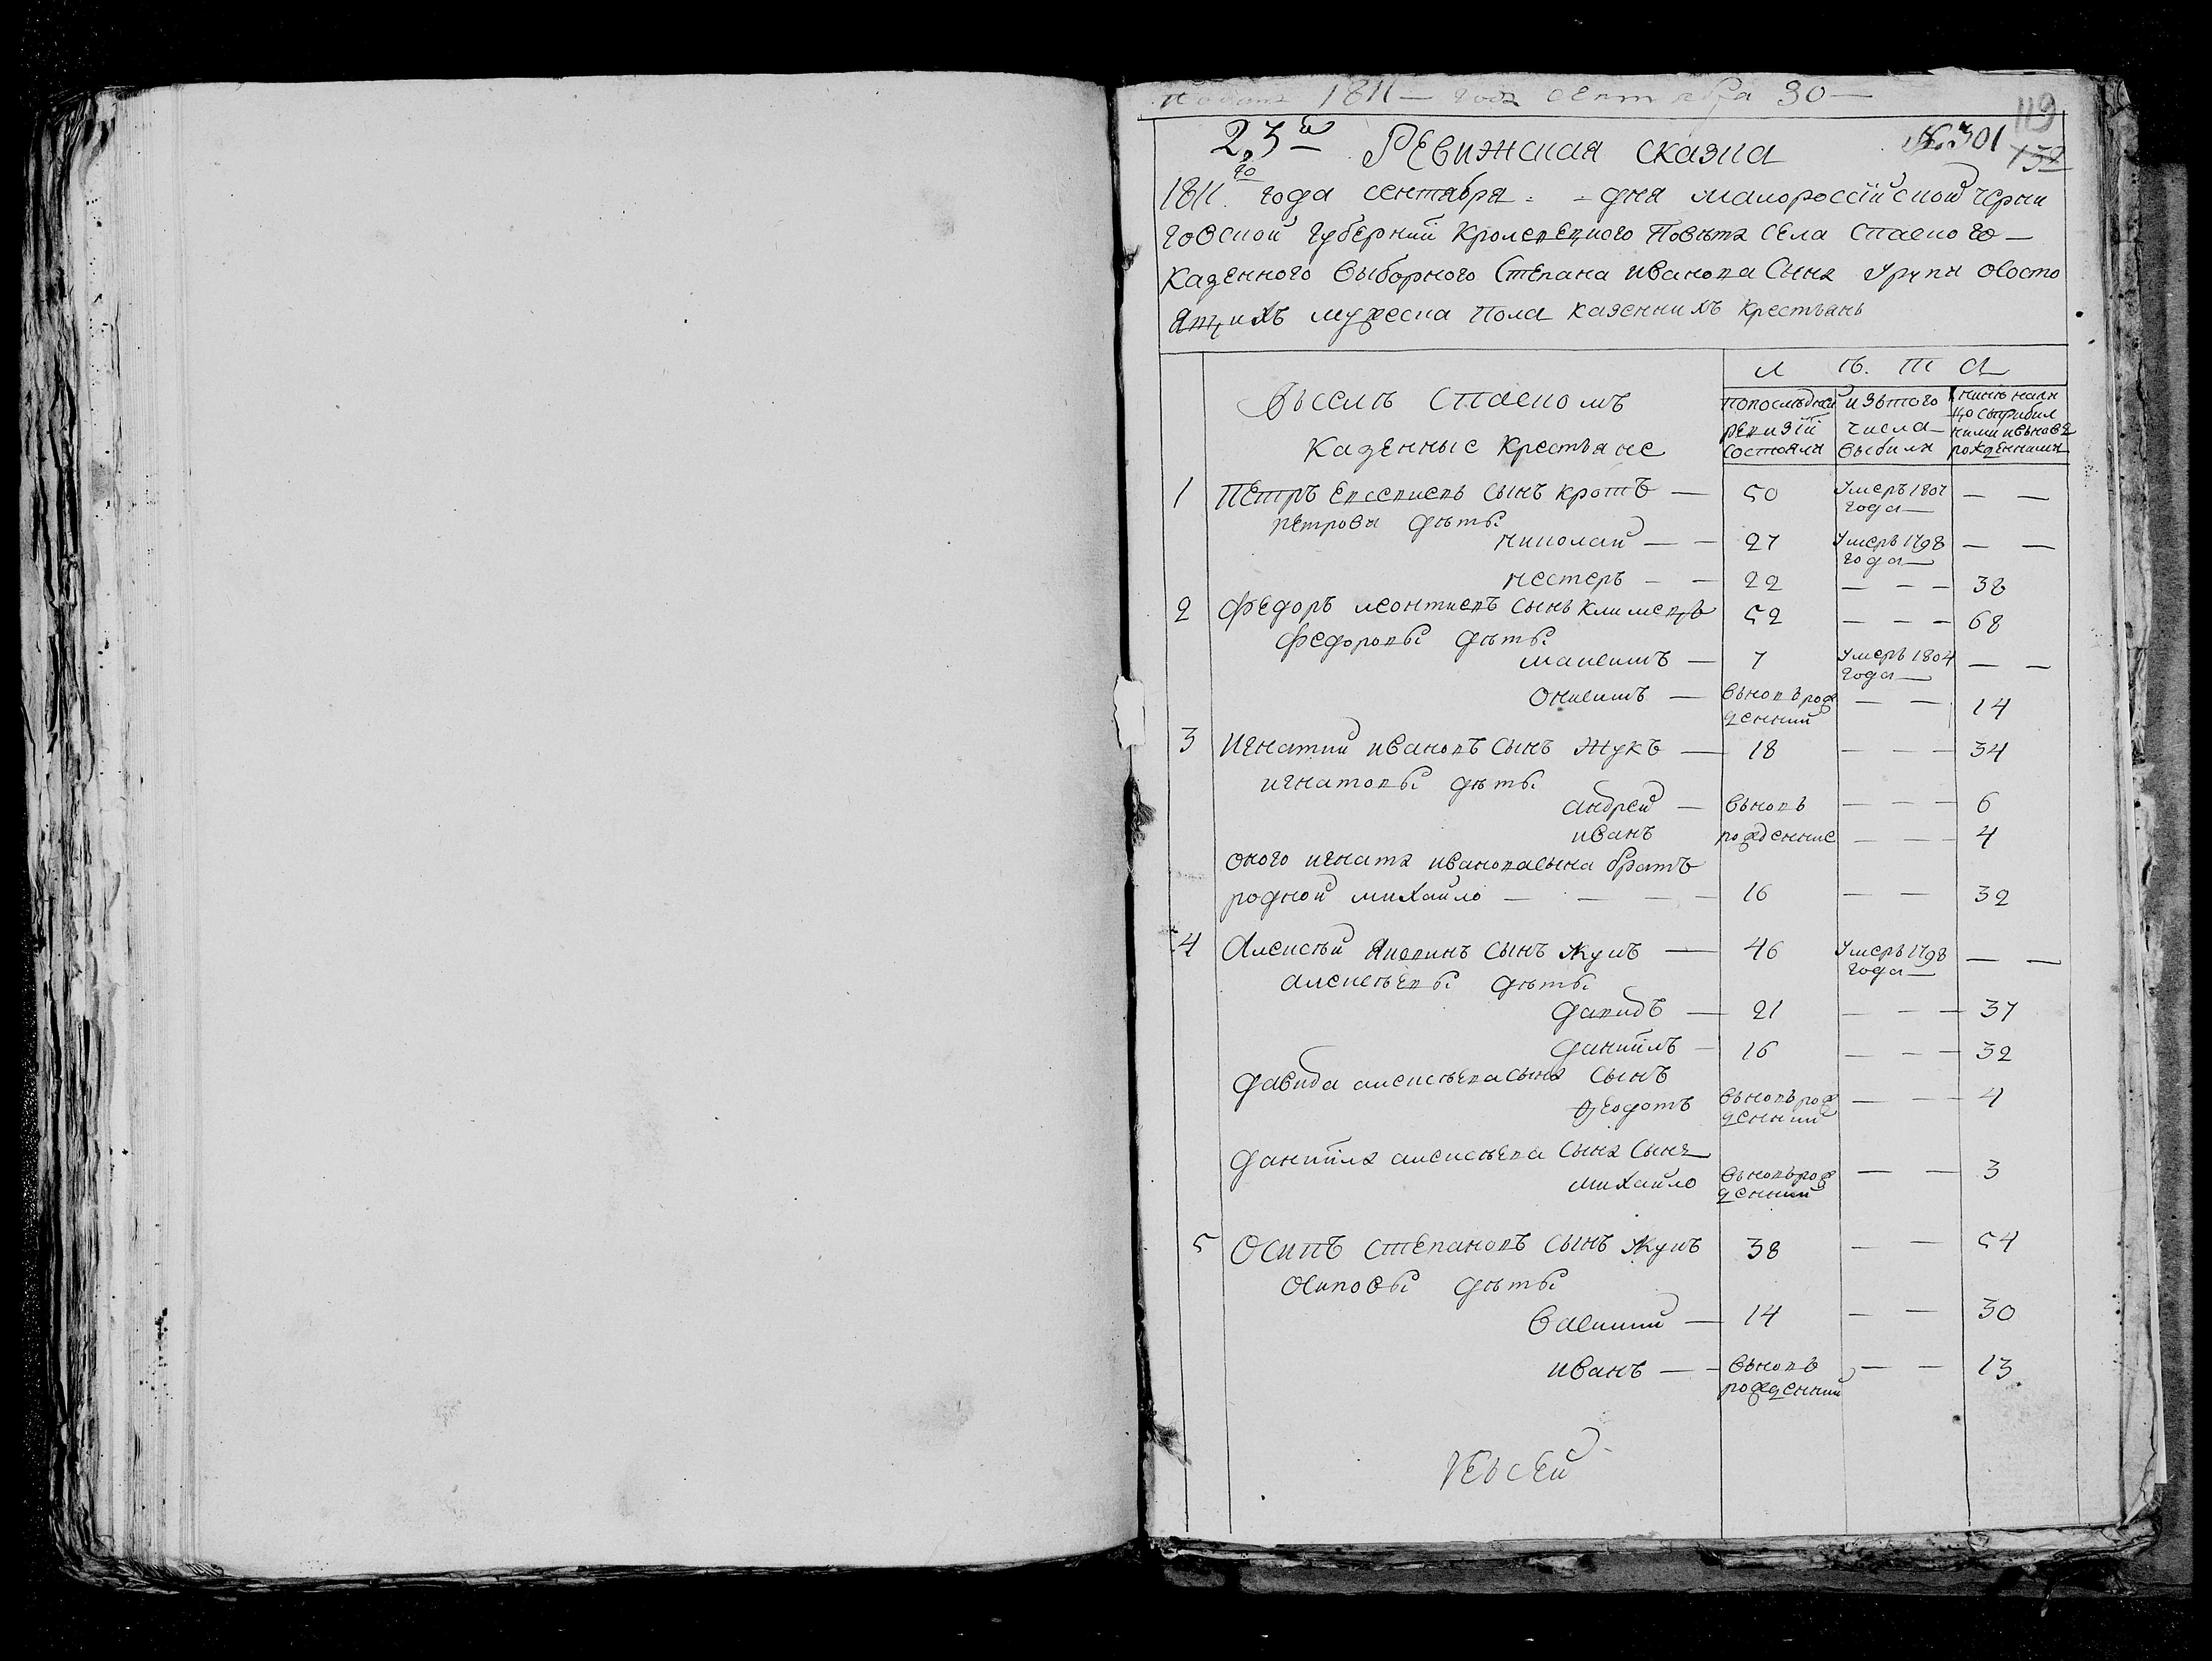 Подана 1811 — года сентября 30 —
119
23й Ревижская сказка №301
132
1811го года сентября = - дня малороссійской черни
говской губерніи Кролевецкого Повета села Спаского —
Казенного выборного Степана иванова Сына о состо
ящихъ мужеска Пола казеннихъ крестьянь
Вьселе Спаскомъ
Казенные крестьяне
л ѣ т а
попоследней ревизіи состояли
изьтого числа выбили
рожденними
1 Петръ евсевиевъ сынъ кротъ — 50 Умеръ 1807 года — —
петрови дѣты
николай — — 27 Умеръ 1798 года — —
нестеръ — — 22 — — — 38
2 Федоръ леонтиевъ сынъ климецъ 52 — — — 68
Федоровы дѣты
макситъ — 7 Умеръ 1804 года — —
Онисимъ — вьновь рож денний — — 14
3 Игнатий ивановъ сынъ жукъ — 18 — — — 34
игнатовы дѣты
андрей — вьновь — — — 6
иванъ рожденние — — — 4
оного игната иванова сына братъ
родной михайло — — — — 16 — — 32
4 Алексѣй сынъ жукъ — 46 Умеръ 1798 года — —
алексѣевы дѣты
давидъ — 21 — — — 37
даніилъ — 16 — — — 32
давида алексѣева сына сынъ
феодотъ вьновь рож денний — — — 4
даніила алексѣева сына сынъ
михайло вьновь рож денний — — 3
5 Осипъ степановъ сынъ жукъ 38 — — 54
Осиповы дѣты
василий — 14 — — 30
иванъ — — вьновь рожденний — — 13